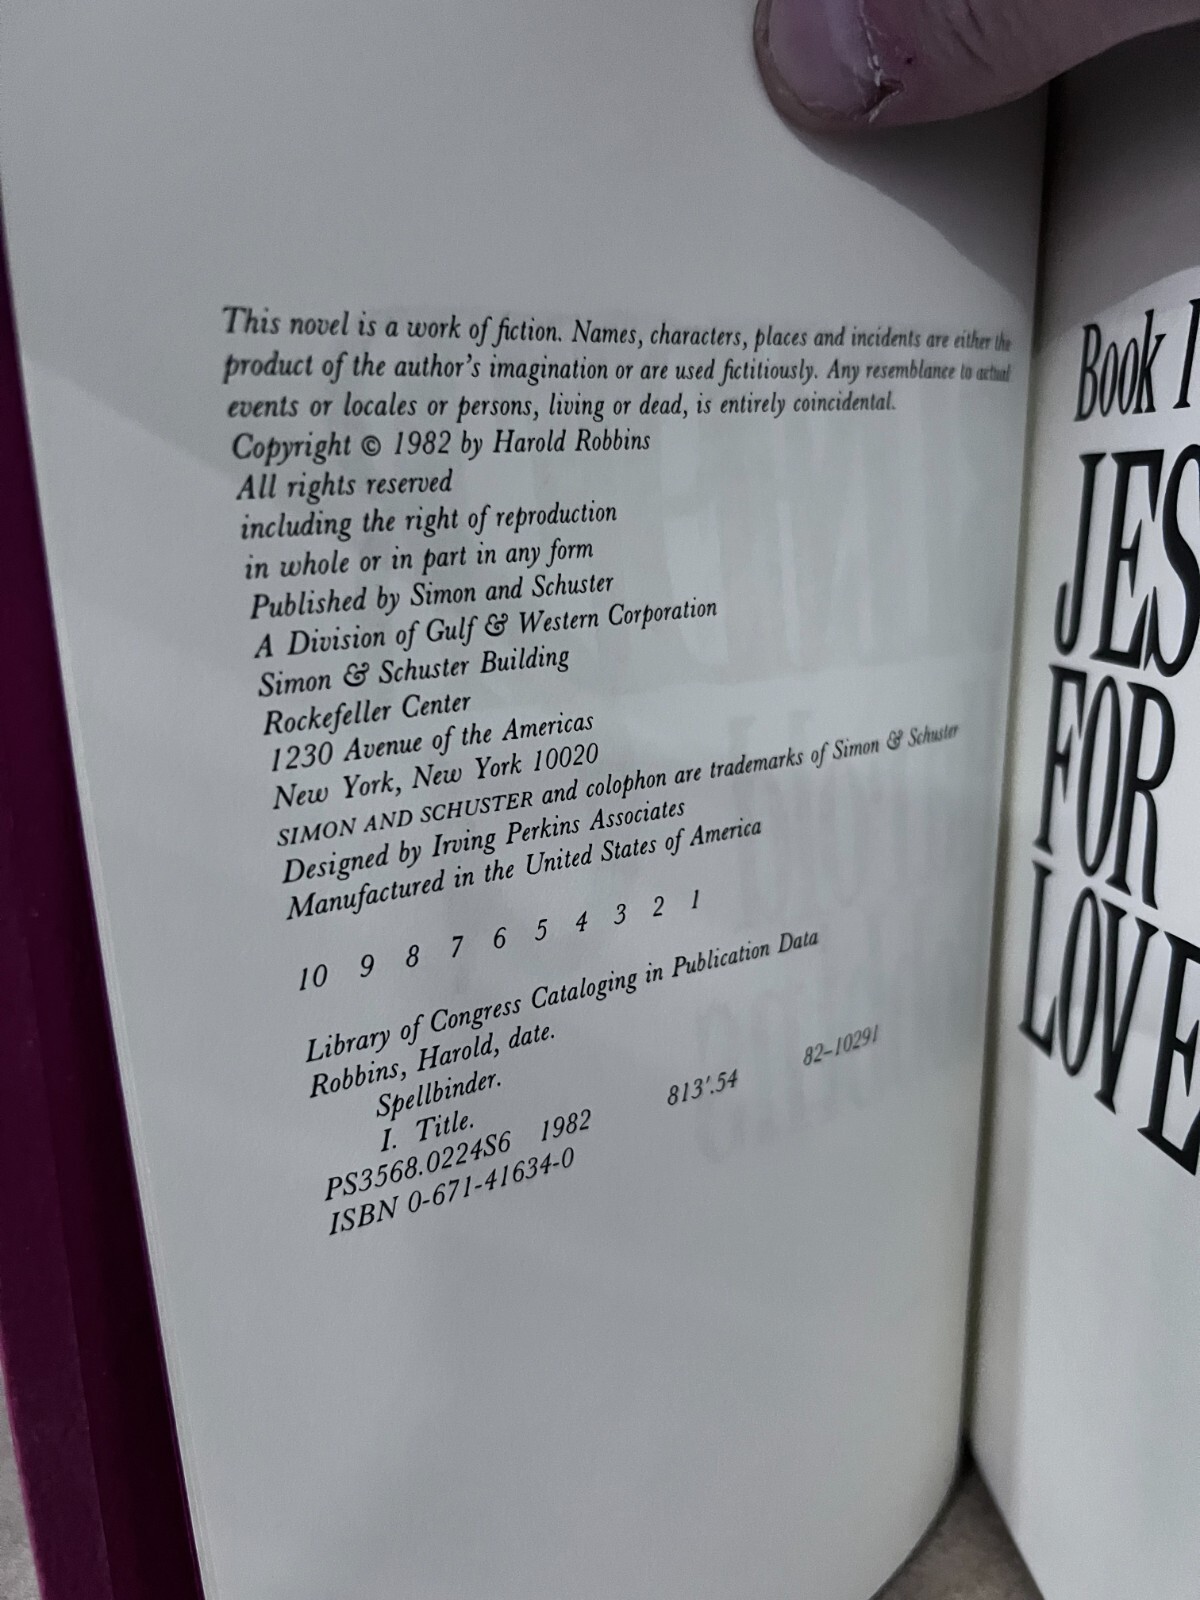 This novel is a work of fiction. Names, characters, places and incidents are either the
product of the author's imagination or are used fictitiously. Any resemblance to actual
events or locales or persons, living or dead, is entirely coincidental.
Copyright © 1982 by Harold Robbins
All rights reserved
including the right of reproduction
in whole or in part in any form
Published by Simon and Schuster
A Division of Gulf & Western Corporation
Simon & Schuster Building
Rockefeller Center
1230 Avenue of the Americas
New York, New York 10020
SIMON AND SCHUSTER and colophon are trademarks of Simon & Schuster
Designed by Irving Perkins Associates
Manufactured in the United States of America
10 9 8 7 6 5 4 3 2 1
Library of Congress Cataloging in Publication Data
Robbins, Harold, date.
Spellbinder.
I. Title.
PS3568.0224S6 1982 813'.54 82-10291
ISBN 0-671-41634-0
Book
JES
FOR
LOVE